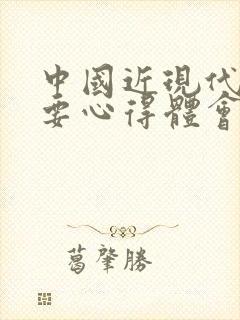 中國近現代
要心得體會
葛肇勝